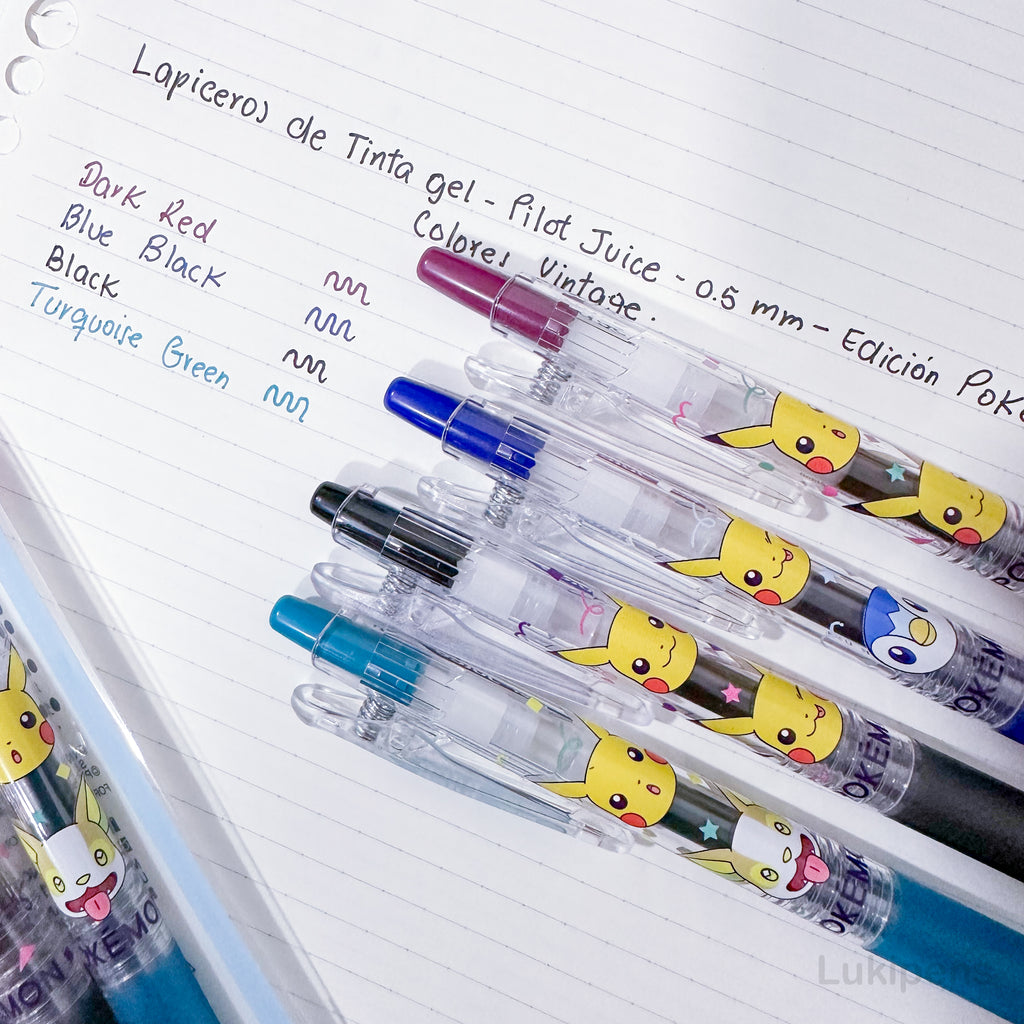 Lapiceros de Tinta gel - Pilot Juice - 0.5 mm - Edición Poké
Colores Vintage.
Dark Red
Blue Black
Black
Turquoise Green
POKÉM
POKÉM
OKÉM
MON
KÉMO
Lukipens